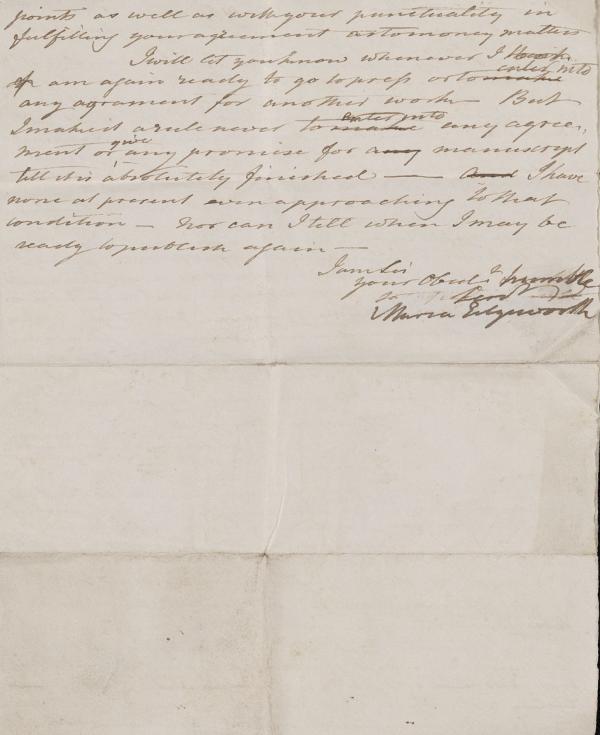 points as well as with your punctuality in
fulfilling your agreement as to money matters
I will let you know whenever I
am again ready to go to press or to make enter into
any agrament for another work — But
I make it a rule never to make enter into any agree-
ment or give any promise for any manuscript
till it is absolutely finished — And I have
none at present even approaching to that
condition — nor can I tell when I may be
ready to publish again —
I am Sir
your Obedt humble
Servt
Maria Edgeworth